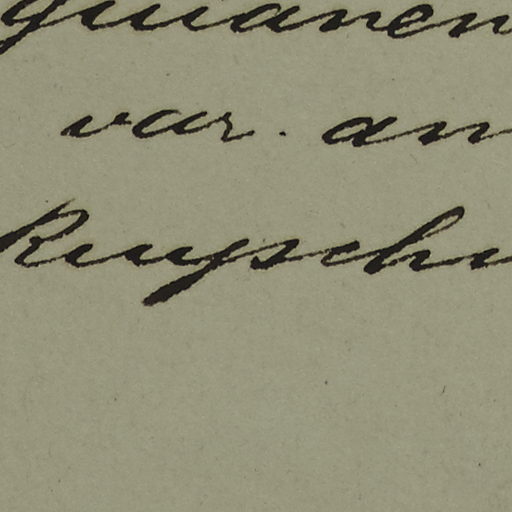 guianen
var. an
Ruyschi